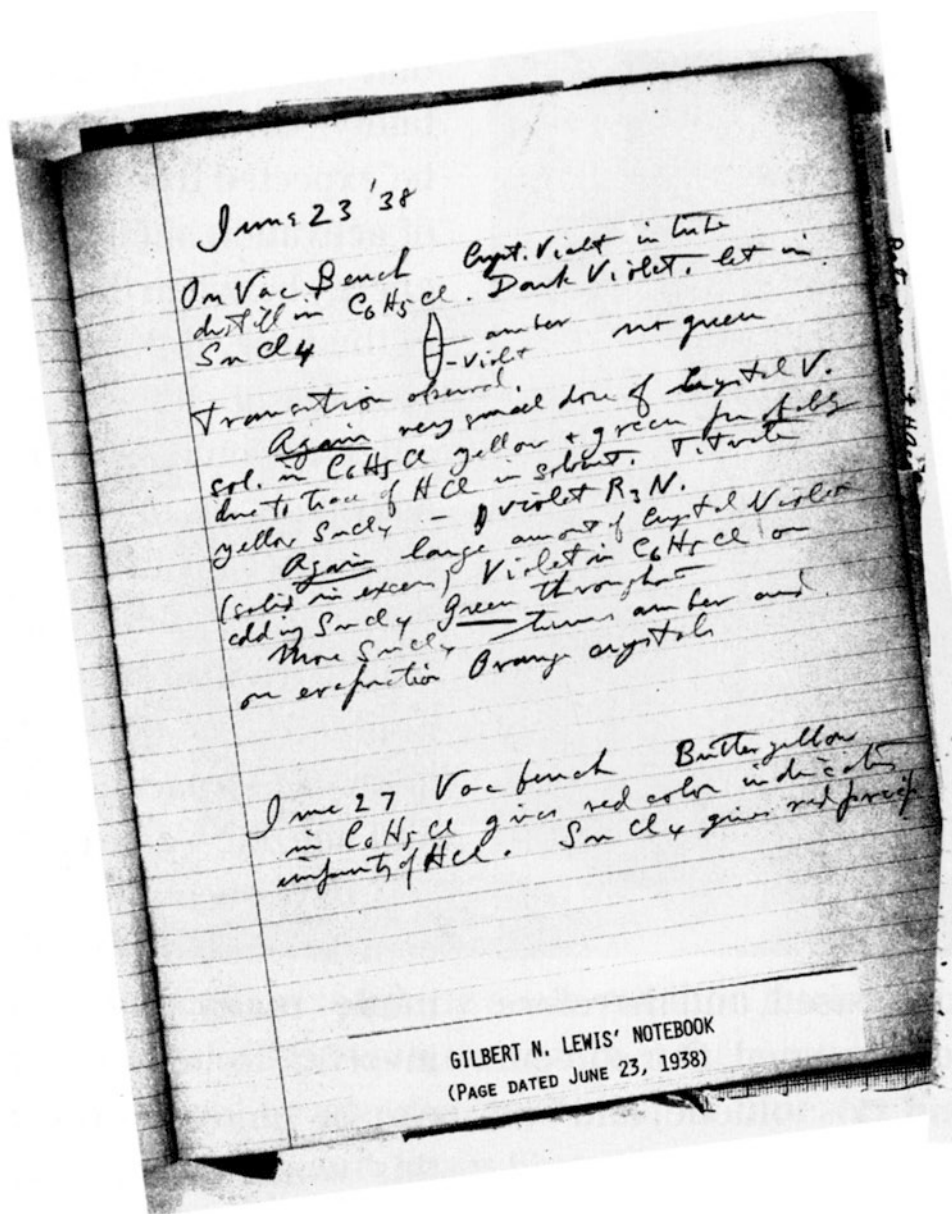 June 23 '38
On Vac Bench Cryst. Violet in tube
distill in C6H5Cl. Dark Violet. let in
SnCl4 - amber not green
- Violet
Transition observed.
Again very small dose of Crystal V.
sol. in C6H5Cl yellow + green probably
due to trace of HCl in solvent. Titrate
yellow SnCl4 - violet R3N.
Again large amount of Crystal Violet
(solid in excess) Violet in C6H5Cl on
adding SnCl4 green throughout
More SnCl4 turns amber and
on evaporation Orange crystals
June 27 Vac bench Butter yellow
in C6H5Cl gives red color indicates
impurity of HCl. SnCl4 gives red precip
GILBERT N. LEWIS' NOTEBOOK
(PAGE DATED JUNE 23, 1938)